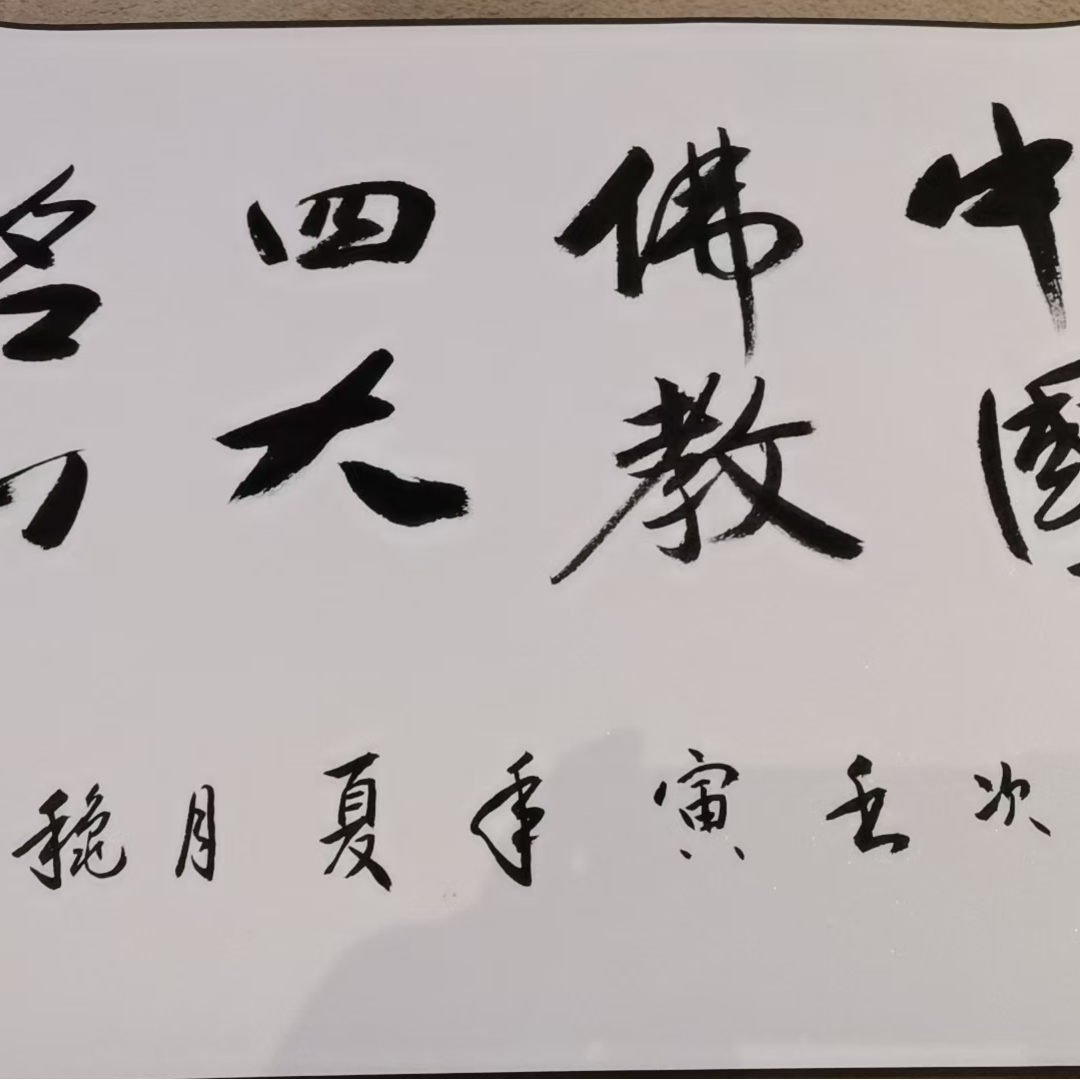 中國
佛教
四大
名
次壬寅年夏月